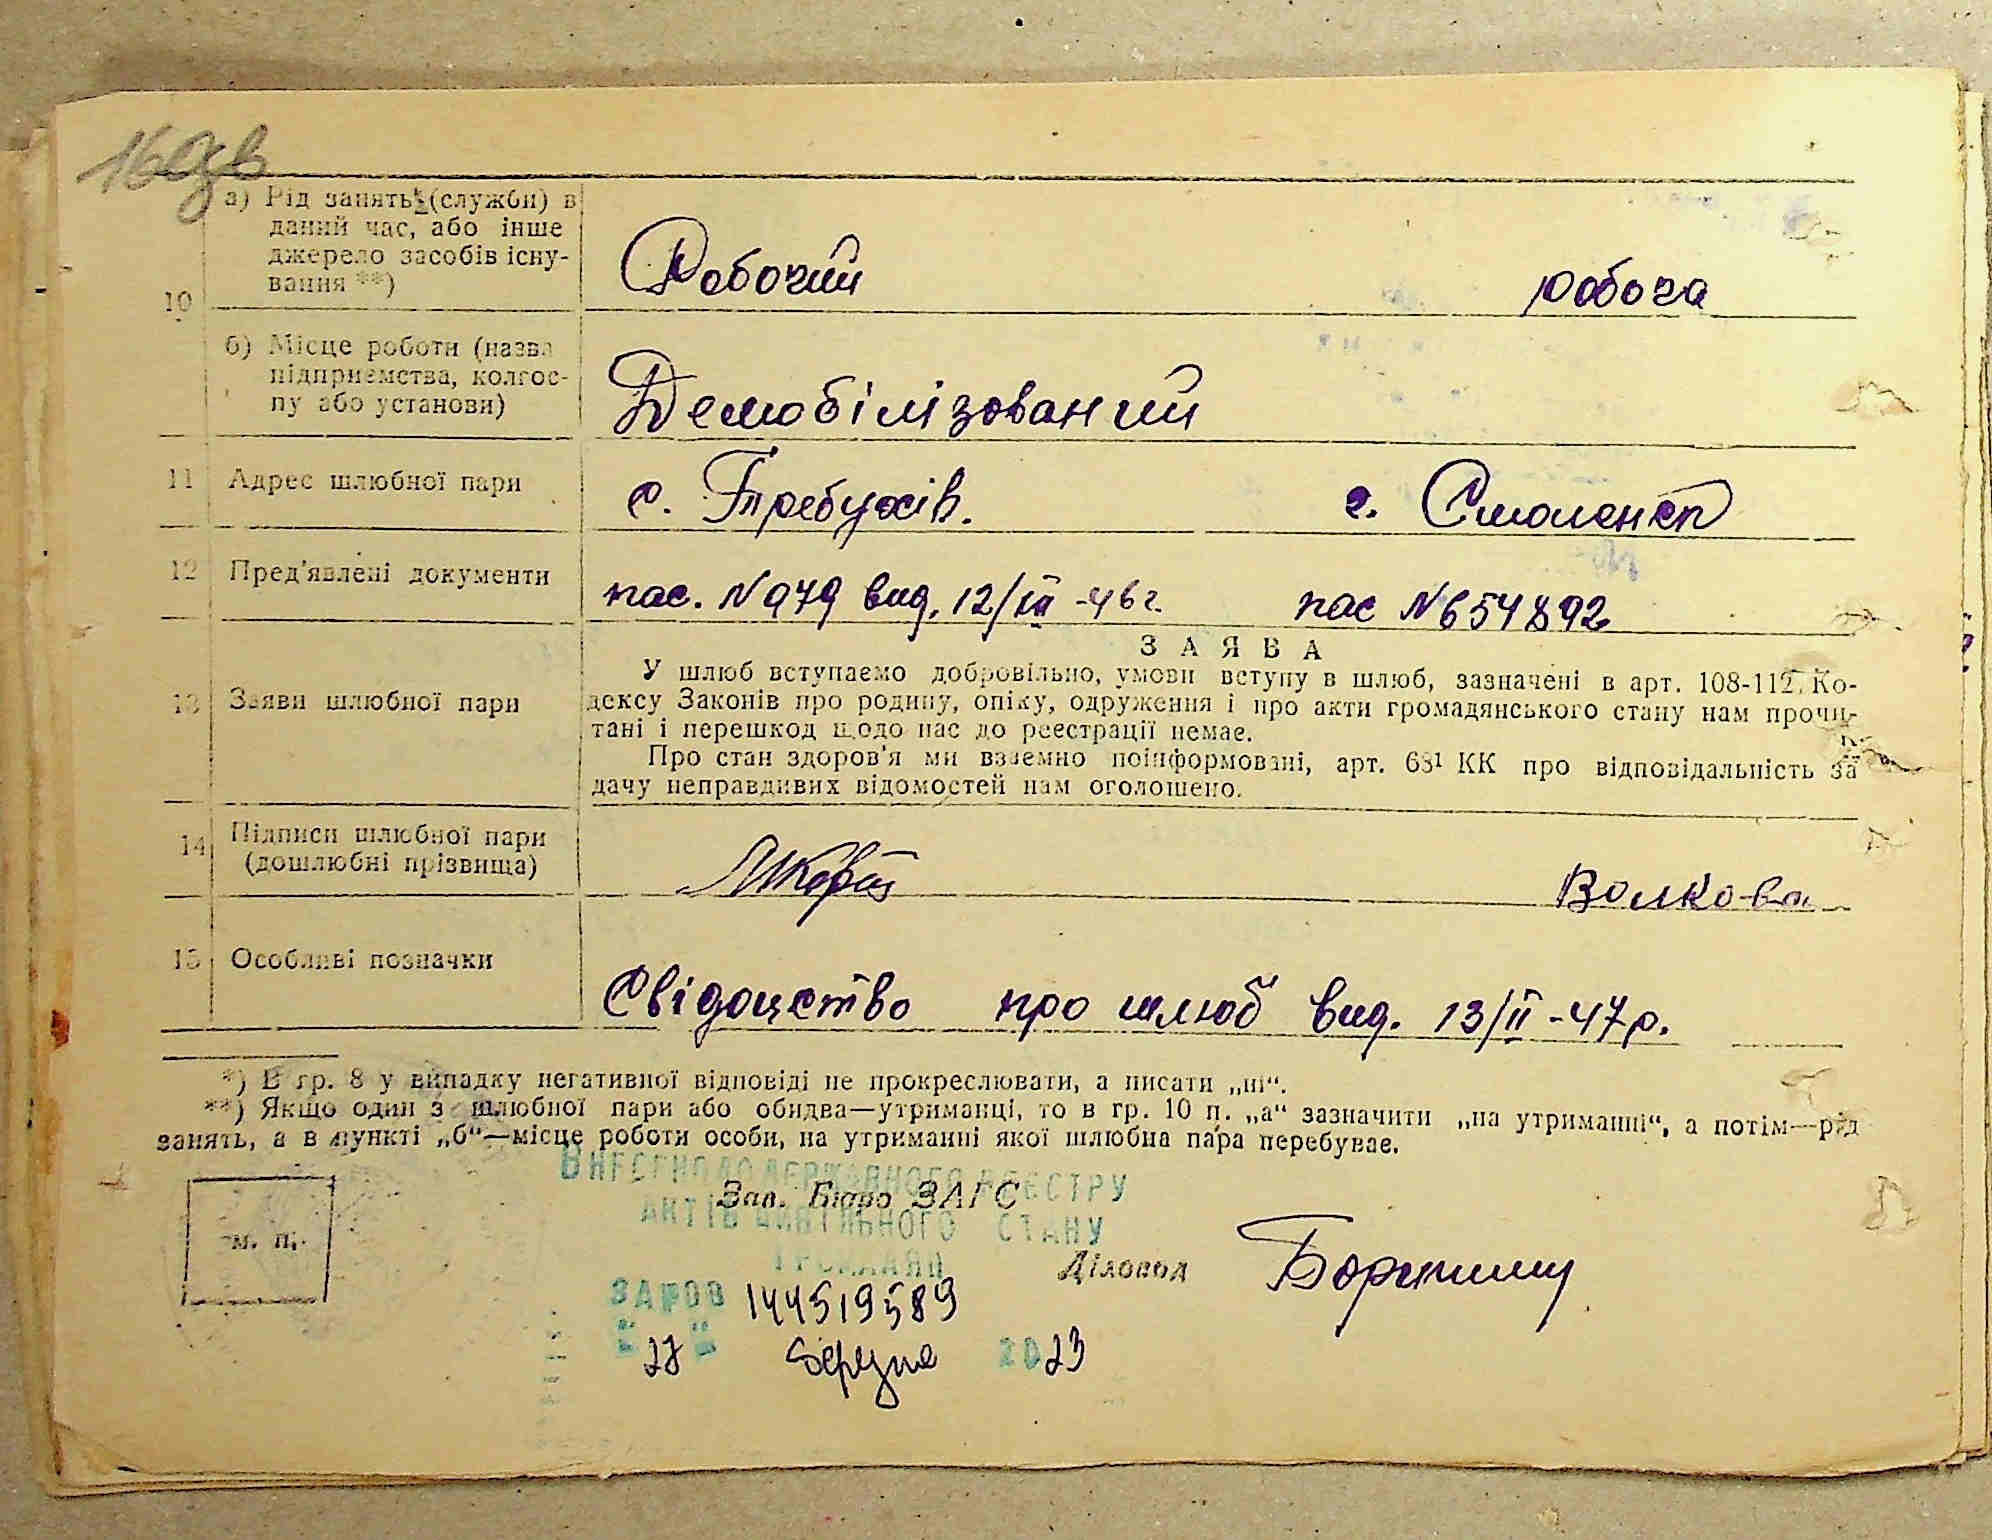 16 зв
а) Рід занять (служби) в
даний час, або інше
джерело засобів існу-
вання **)
10
Робочий робоча
б) Місце роботи (назва
підприємства, колгос-
пу або установи)
Демобілізований
11 Адрес шлюбної пари с. Требухів. г. Смоленск
12 Пред'явлені документи пас. N 979 вид. 12/III -46 г. пас N 654892
ЗАЯВА
13 Заяви шлюбної пари
У шлюб вступаємо добровільно, умови вступу в шлюб, зазначені в арт. 108-112, Ко-
дексу Законів про родину, опіку, одруження і про акти громадянського стану нам прочи-
тані і перешкод щодо нас до реєстрації немає.
Про стан здоров'я ми взаємно поінформовані, арт. 68¹ КК про відповідальність за
дачу неправдивих відомостей нам оголошено.
14 Підписи шлюбної пари
(дошлюбні прізвища)
Волкова
15 Особливі позначки
Свідоцтво про шлюб вид. 13/II -47 р.
*) В гр. 8 у випадку негативної відповіді не прокреслювати, а писати „ні“.
**) Якщо один з шлюбної пари або обидва—утриманці, то в гр. 10 п. „а“ зазначити „на утриманні“, а потім—рід
занять, а в пункті „б“—місце роботи особи, на утриманні якої шлюбна пара перебуває.
ВНЕСЕНО ДО ДЕРЖАВНОГО РЕЄСТРУ
Зав. Бюро ЗАГС
АКТІВ ЦИВІЛЬНОГО СТАНУ
ГРОМАДЯН
м. п.
Діловод
ЗА № 00144519589
" 27 " березня 2023